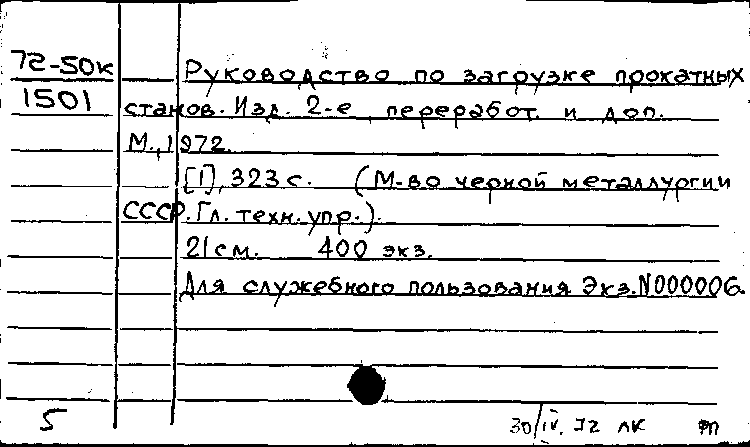 72-50к
1501
Руководство по загрузке прокатных
станов. Изд. 2-е, переработ. и доп.
М., 1972.
[1], 323 с. (М-во черной металлургии
СССР. Гл. техн. упр.).
21 см. 400 экз.
Для служебного пользования Экз. N000006
5
30/IV. 72 лк